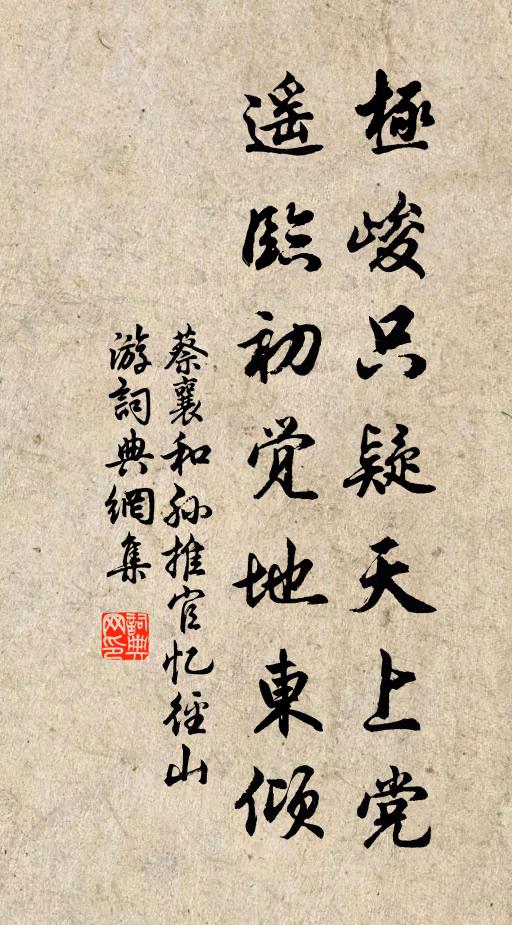 極峻只疑天上党
遥臨初觉地東倾
蔡襄和孙推官忆徑山
游詞典網集
詞典
网印